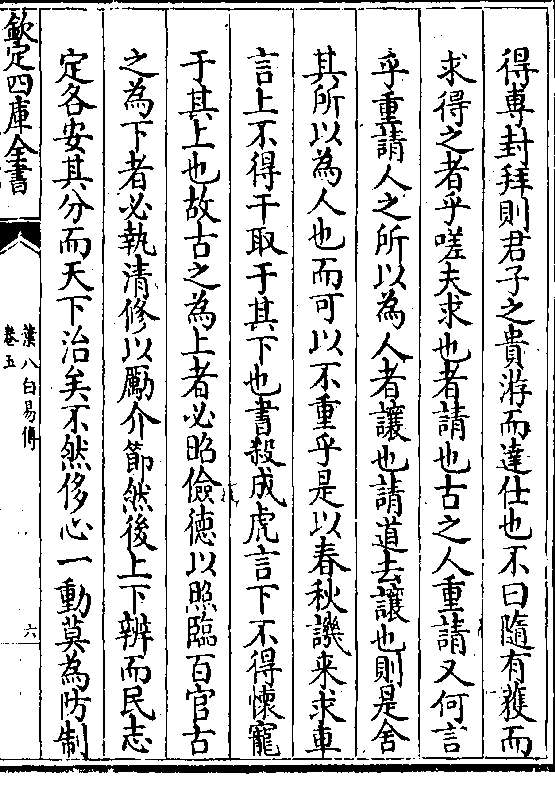 得専封拜則君子之貴游而達仕也不曰隨有獲而
求得之者乎嗟夫求也者請也古之人重請又何言
乎重請人之所以為人者讓也請道去讓也則是舍
其所以為人也而可以不重乎是以春秋譏來求車
言上不得干取于其下也書殺成虎言下不得懷寵
于其上也故古之為上者必昭儉德以照臨百官古
之為下者必執清修以勵介節然後上下辨而民志
定各安其分而天下治矣不然侈心一動莫為防制
欽定四庫全書
讀八白易傳
卷五
六